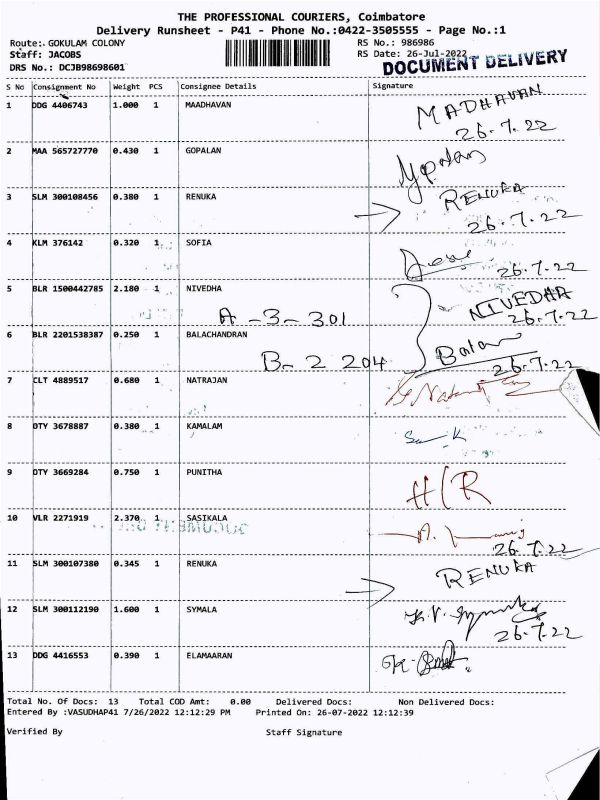 THE PROFESSIONAL COURIERS, Coimbatore
Delivery Runsheet - P41 - Phone No.:0422-3505555 - Page No.:1
Route: GOKULAM COLONY RS No.: 986986
Staff: JACOBS RS Date: 26-Jul-2022
DRS No.: DCJB98698601 DOCUMENT DELIVERY
S No Consignment No Weight PCS Consignee Details Signature
1 DDG 4406743 1.000 1 MAADHAVAN MADHAVAN
26.7.22
2 MAA 565727770 0.430 1 GOPALAN Gopalan
3 SLM 300108456 0.380 1 RENUKA RENUKA
26.7.22
4 KLM 376142 0.320 1 SOFIA
26.7.22
5 BLR 1500442785 2.180 1 NIVEDHA NIVEDHA
A-3-301 26.7.22
6 BLR 2201538387 0.250 1 BALACHANDRAN Balan
B-2 204 26.7.22
7 CLT 4889517 0.680 1 NATRAJAN
8 DTY 3678887 0.380 1 KAMALAM
9 DTY 3669284 0.750 1 PUNITHA
10 VLR 2271919 2.370 1 SASIKALA
26.7.22
11 SLM 300107380 0.345 1 RENUKA RENUKA
12 SLM 300112190 1.600 1 SYMALA
26.7.22
13 DDG 4416553 0.390 1 ELAMAARAN
Total No. Of Docs: 13 Total COD Amt: 0.00 Delivered Docs: Non Delivered Docs:
Entered By :VASUDHAP41 7/26/2022 12:12:29 PM Printed On: 26-07-2022 12:12:39
Verified By Staff Signature